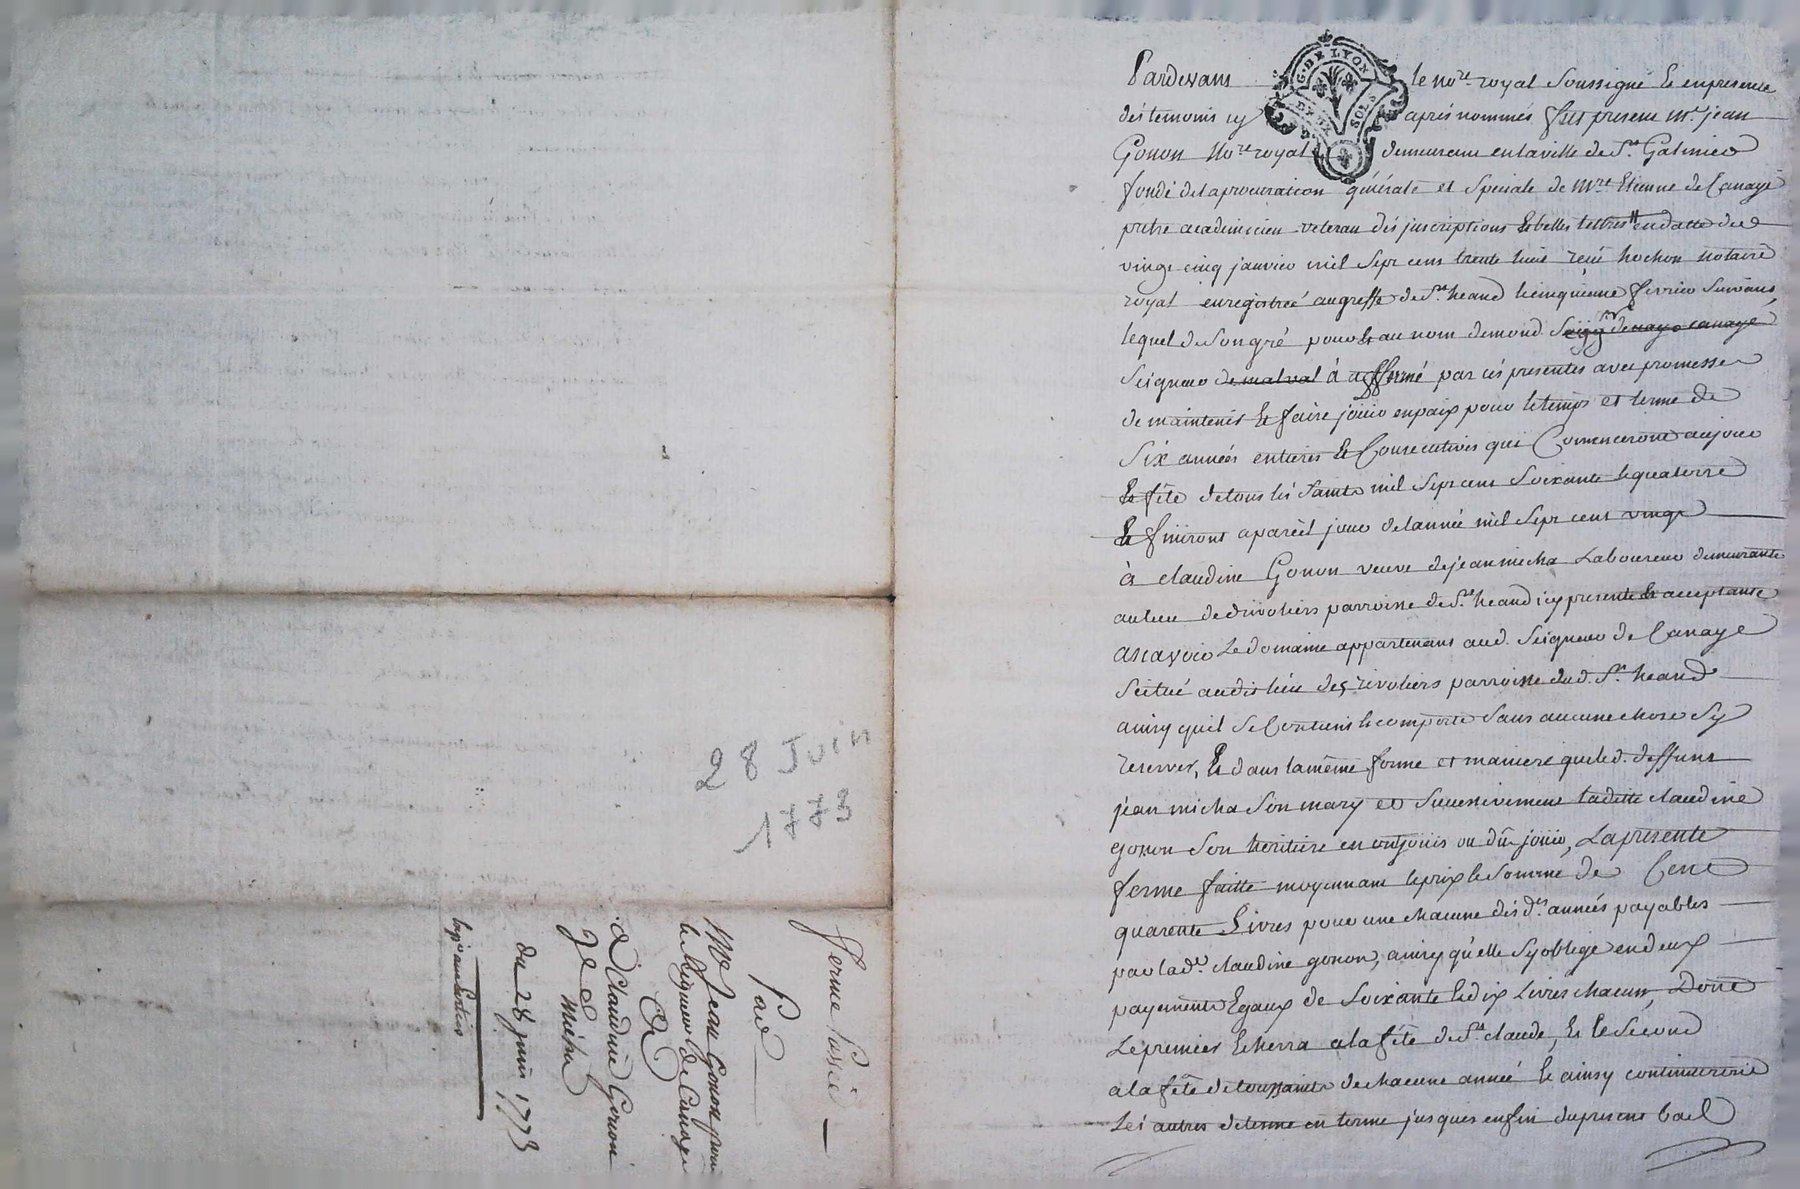 28 Juin
1773
ferme passée
par
Mre Jean Gonon pour
le seigneur de Canaye
à Claudine Gonon
Ve de J.
Micha
du 28 juin 1773
G. DE LYON
DEUX SOLS
Pardevant le nore royal soussigné et en presence
des temoins cy après nommés fut present me jean
Gonon Nore royal demeurant en la ville de St Galmier
fondé de la procuration générale et speciale de Mre Etienne de Canaye
prêtre academicien veteran des jnscriptions et belles lettres en datte du
vingt cinq janvier mil sept cent trente huit reçue hochon notaire
royal enregistrée au greffe de St heand le cinquieme fevrier suivant,
lequel de son gré pour et au nom de mond. canaye
Seigneur de malval à affermé par ces presentes avec promesse
de maintenir et faire jouir en paix pour le temps et terme de
Six années entieres et Consecutives qui Commenceront au jour
et fête de tous les saints mil sept cent soixante et quatorze
et finiront a pareil jour de l'année mil sept cent vingt
à claudine Gonon veuve de jean micha Laboureur demeurante
au lieu de rivoliers parroisse de St heand icy presente et acceptante
ascavoir Le domaine appartenant aud. Seigneur de Canaye
scitué audit lieu des rivoliers parroisse dud. St heand
ainsy quil se Contient et comporte sans aucune chose sy
reserver, et dans la même forme et maniere que led. deffunt
jean micha son mary et successivement laditte claudine
gonon son héritiere en ont jouis ou dû jouir, La presente
ferme faitte moyennant le prix et somme de Cent
quarente Livres pour une chacune des d. années payables
par lad. claudine gonon, ainsy qu'elle sy oblige en deux
payements Egaux de soixante et dix Livres chacun, Dont
Le premier Echerra a la fête de St claude, et le second
a la fête de toussaints de chacune année et ainsy continuer
Les autres de terme en terme jusques en fin du present bail